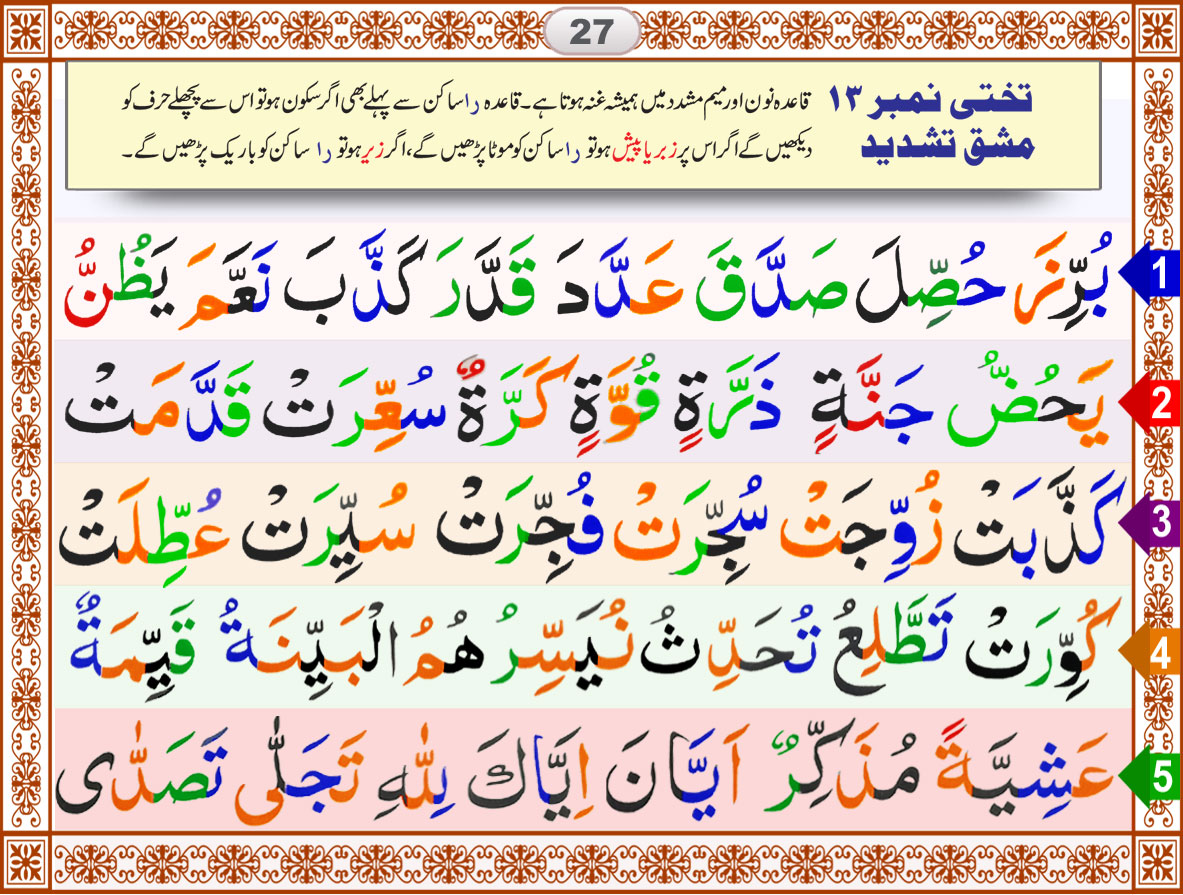 27
تختی نمبر ۱۳ قاعدہ نون اور میم مشدد میں ہمیشہ غنہ ہوتا ہے۔ قاعدہ را ساکن سے پہلے بھی اگر سکون ہو تو اس سے پچھلے حرف کو
مشق تشدید دیکھیں گے اگر اس پر زبر یا پیش ہو تو را ساکن کو موٹا پڑھیں گے، اگر زیر ہو تو را ساکن کو باریک پڑھیں گے۔
1 بُرِّزَ حُصِّلَ صَدَّقَ عَدَّدَ قَدَّرَ كَذَّبَ نَعَّمَ يَظُنُّ
2 يَحُضُّ جَنَّةٍ ذَرَّةٍ قُوَّةٍ كَرَّةٌ سُعِّرَتْ قَدَّمَتْ
3 كَذَّبَتْ زُوِّجَتْ سُجِّرَتْ فُجِّرَتْ سُيِّرَتْ عُطِّلَتْ
4 كُوِّرَتْ تَطَّلِعُ تُحَدِّثُ نُيَسِّرُ هُمُ الْبَيِّنَةُ قَيِّمَةٌ
5 عَشِيَّةً مُذَكِّرٌ اَيَّانَ اِيَّاكَ لِلّٰهِ تَجَلّٰى تَصَدّٰى